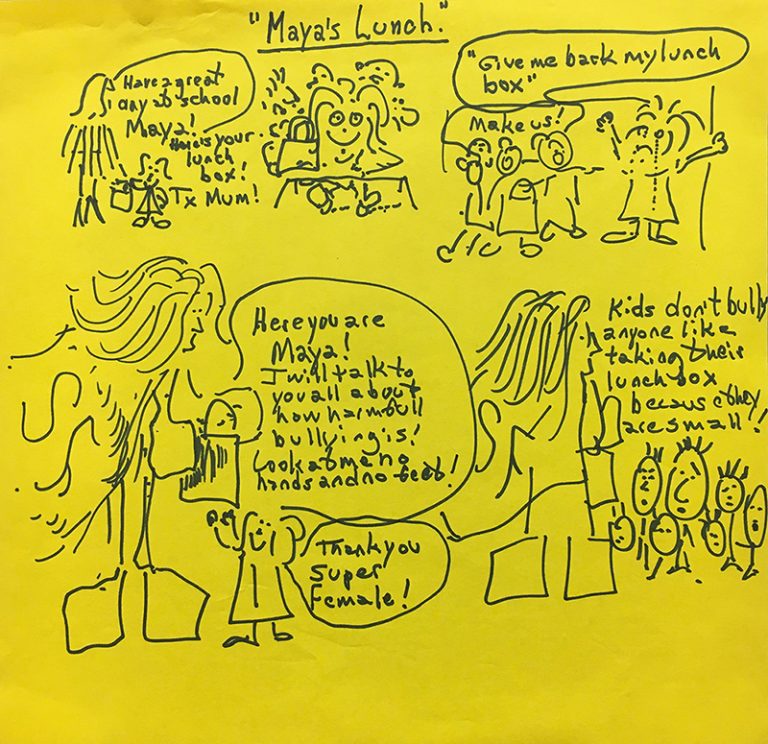 "Maya's Lunch."
Have a great
day at school
Maya!
Here is your
lunch
box!
Tx Mum!
"Give me back my lunch
box"
Make us!
Here you are
Maya!
I will talk to
you all about
how harmbull
bullying is!
Look at me no
hands and no feet!
Thank you
Super
Female!
Kids don't bully
anyone like
taking their
lunch box
because they
are small!